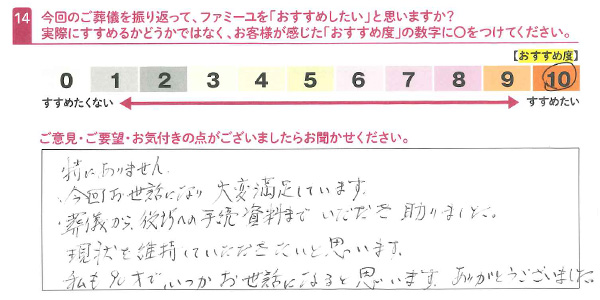 14 今回のご葬儀を振り返って、ファミーユを「おすすめしたい」と思いますか?
実際にすすめるかどうかではなく、お客様が感じた「おすすめ度」の数字に○をつけてください。
【おすすめ度】
0 1 2 3 4 5 6 7 8 9 10
すすめたくない すすめたい
ご意見・ご要望・お気付きの点がございましたらお聞かせください。
特にありません
・今回お世話になり 大変満足しています。
・葬儀から、役場への手続資料まで いただき 助りました。
現状を維持していただきたいと思います。
私も 才で、いつか お世話になると 思います。ありがとうございました。